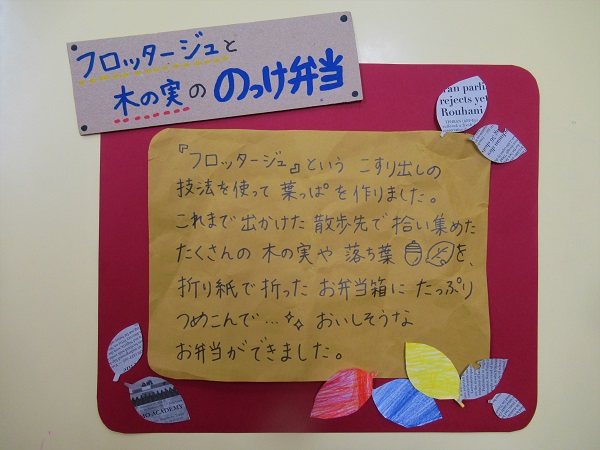 フロッタージュと
木の実の のっけ弁当
『フロッタージュ』という こすり出しの
技法を使って 葉っぱを作りました。
これまで出かけた 散歩先で 拾い集めた
たくさんの 木の実や 落ち葉を、
折り紙で折った お弁当箱に たっぷり
つめこんで… おいしそうな
お弁当ができました。
rejects yet
Rouhani